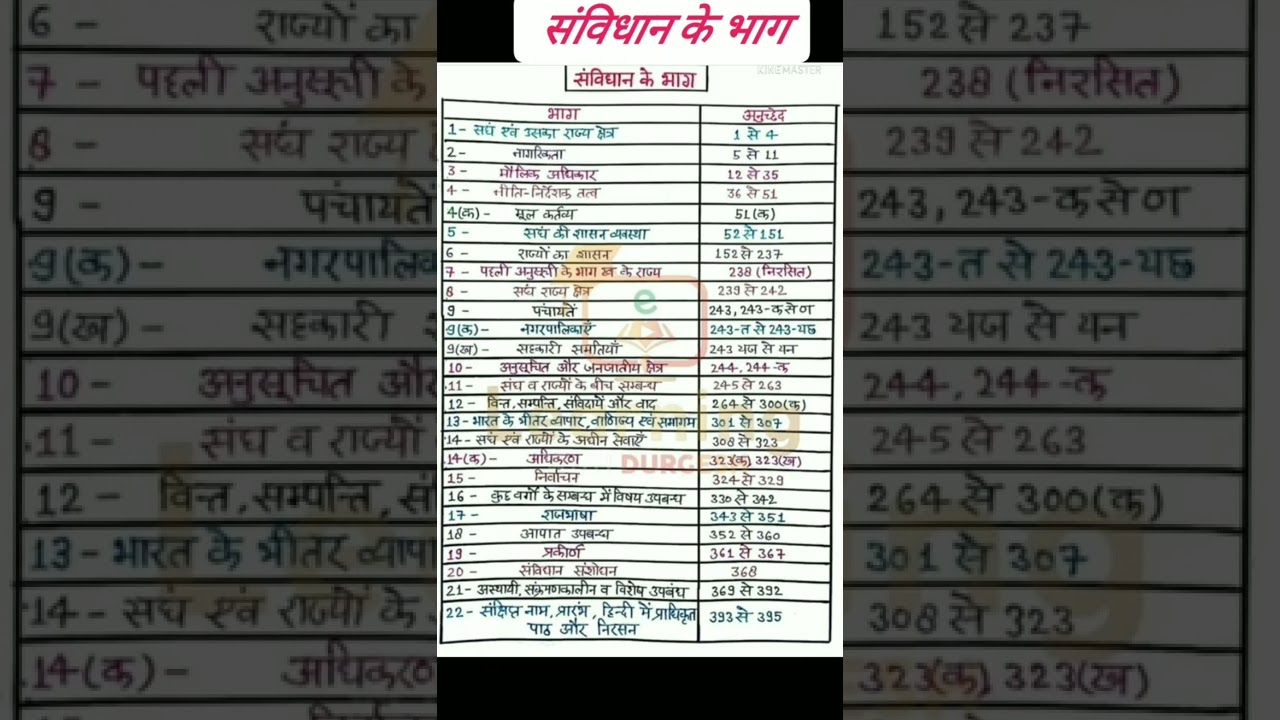 संविधान के भाग
KINEMASTER
संविधान के भाग
भाग अनुच्छेद
1- सघं एवं उसका राज्य क्षेत्र 1 से 4
2- नागरिकता 5 से 11
3- मौलिक अधिकार 12 से 35
4- नीति-निर्देशक तत्व 36 से 51
4(क)- मूल कर्तव्य 51(क)
5- सघं की शासन व्यवस्था 52 से 151
6- राज्यों का शासन 152 से 237
7- पहली अनुसूची के भाग ख के राज्य 238 (निरसित)
8- सघं राज्य क्षेत्र 239 से 242
9- पंचायतें 243, 243-क से ण
9(क)- नगरपालिकाएँ 243-त से 243-यछ
9(ख)- सहकारी समतियाँ 243 यज से यन
10- अनुसूचित और जनजातीय क्षेत्र 244, 244-क
11- संघ व राज्यों के बीच सम्बन्ध 245 से 263
12- वित्त, सम्पत्ति, संविदायें और वाद 264 से 300(क)
13- भारत के भीतर व्यापार, वाणिज्य एवं समागम 301 से 307
14- सघं एवं राज्यों के अधीन सेवाएँ 308 से 323
14(क)- अधिकरण 323(क) 323(ख)
15- निर्वाचन 324 से 329
16- कुछ वर्गो के सम्बन्ध में विषय उपबन्ध 330 से 342
17- राजभाषा 343 से 351
18- आपात उपबन्ध 352 से 360
19- प्रकीर्ण 361 से 367
20- संविधान संशोधन 368
21- अस्थायी, संक्रमणकालीन व विशेष उपबंध 369 से 392
22- संक्षिप्त नाम, प्रारंभ, हिन्दी में प्राधिकृत 393 से 395
पाठ और निरसन